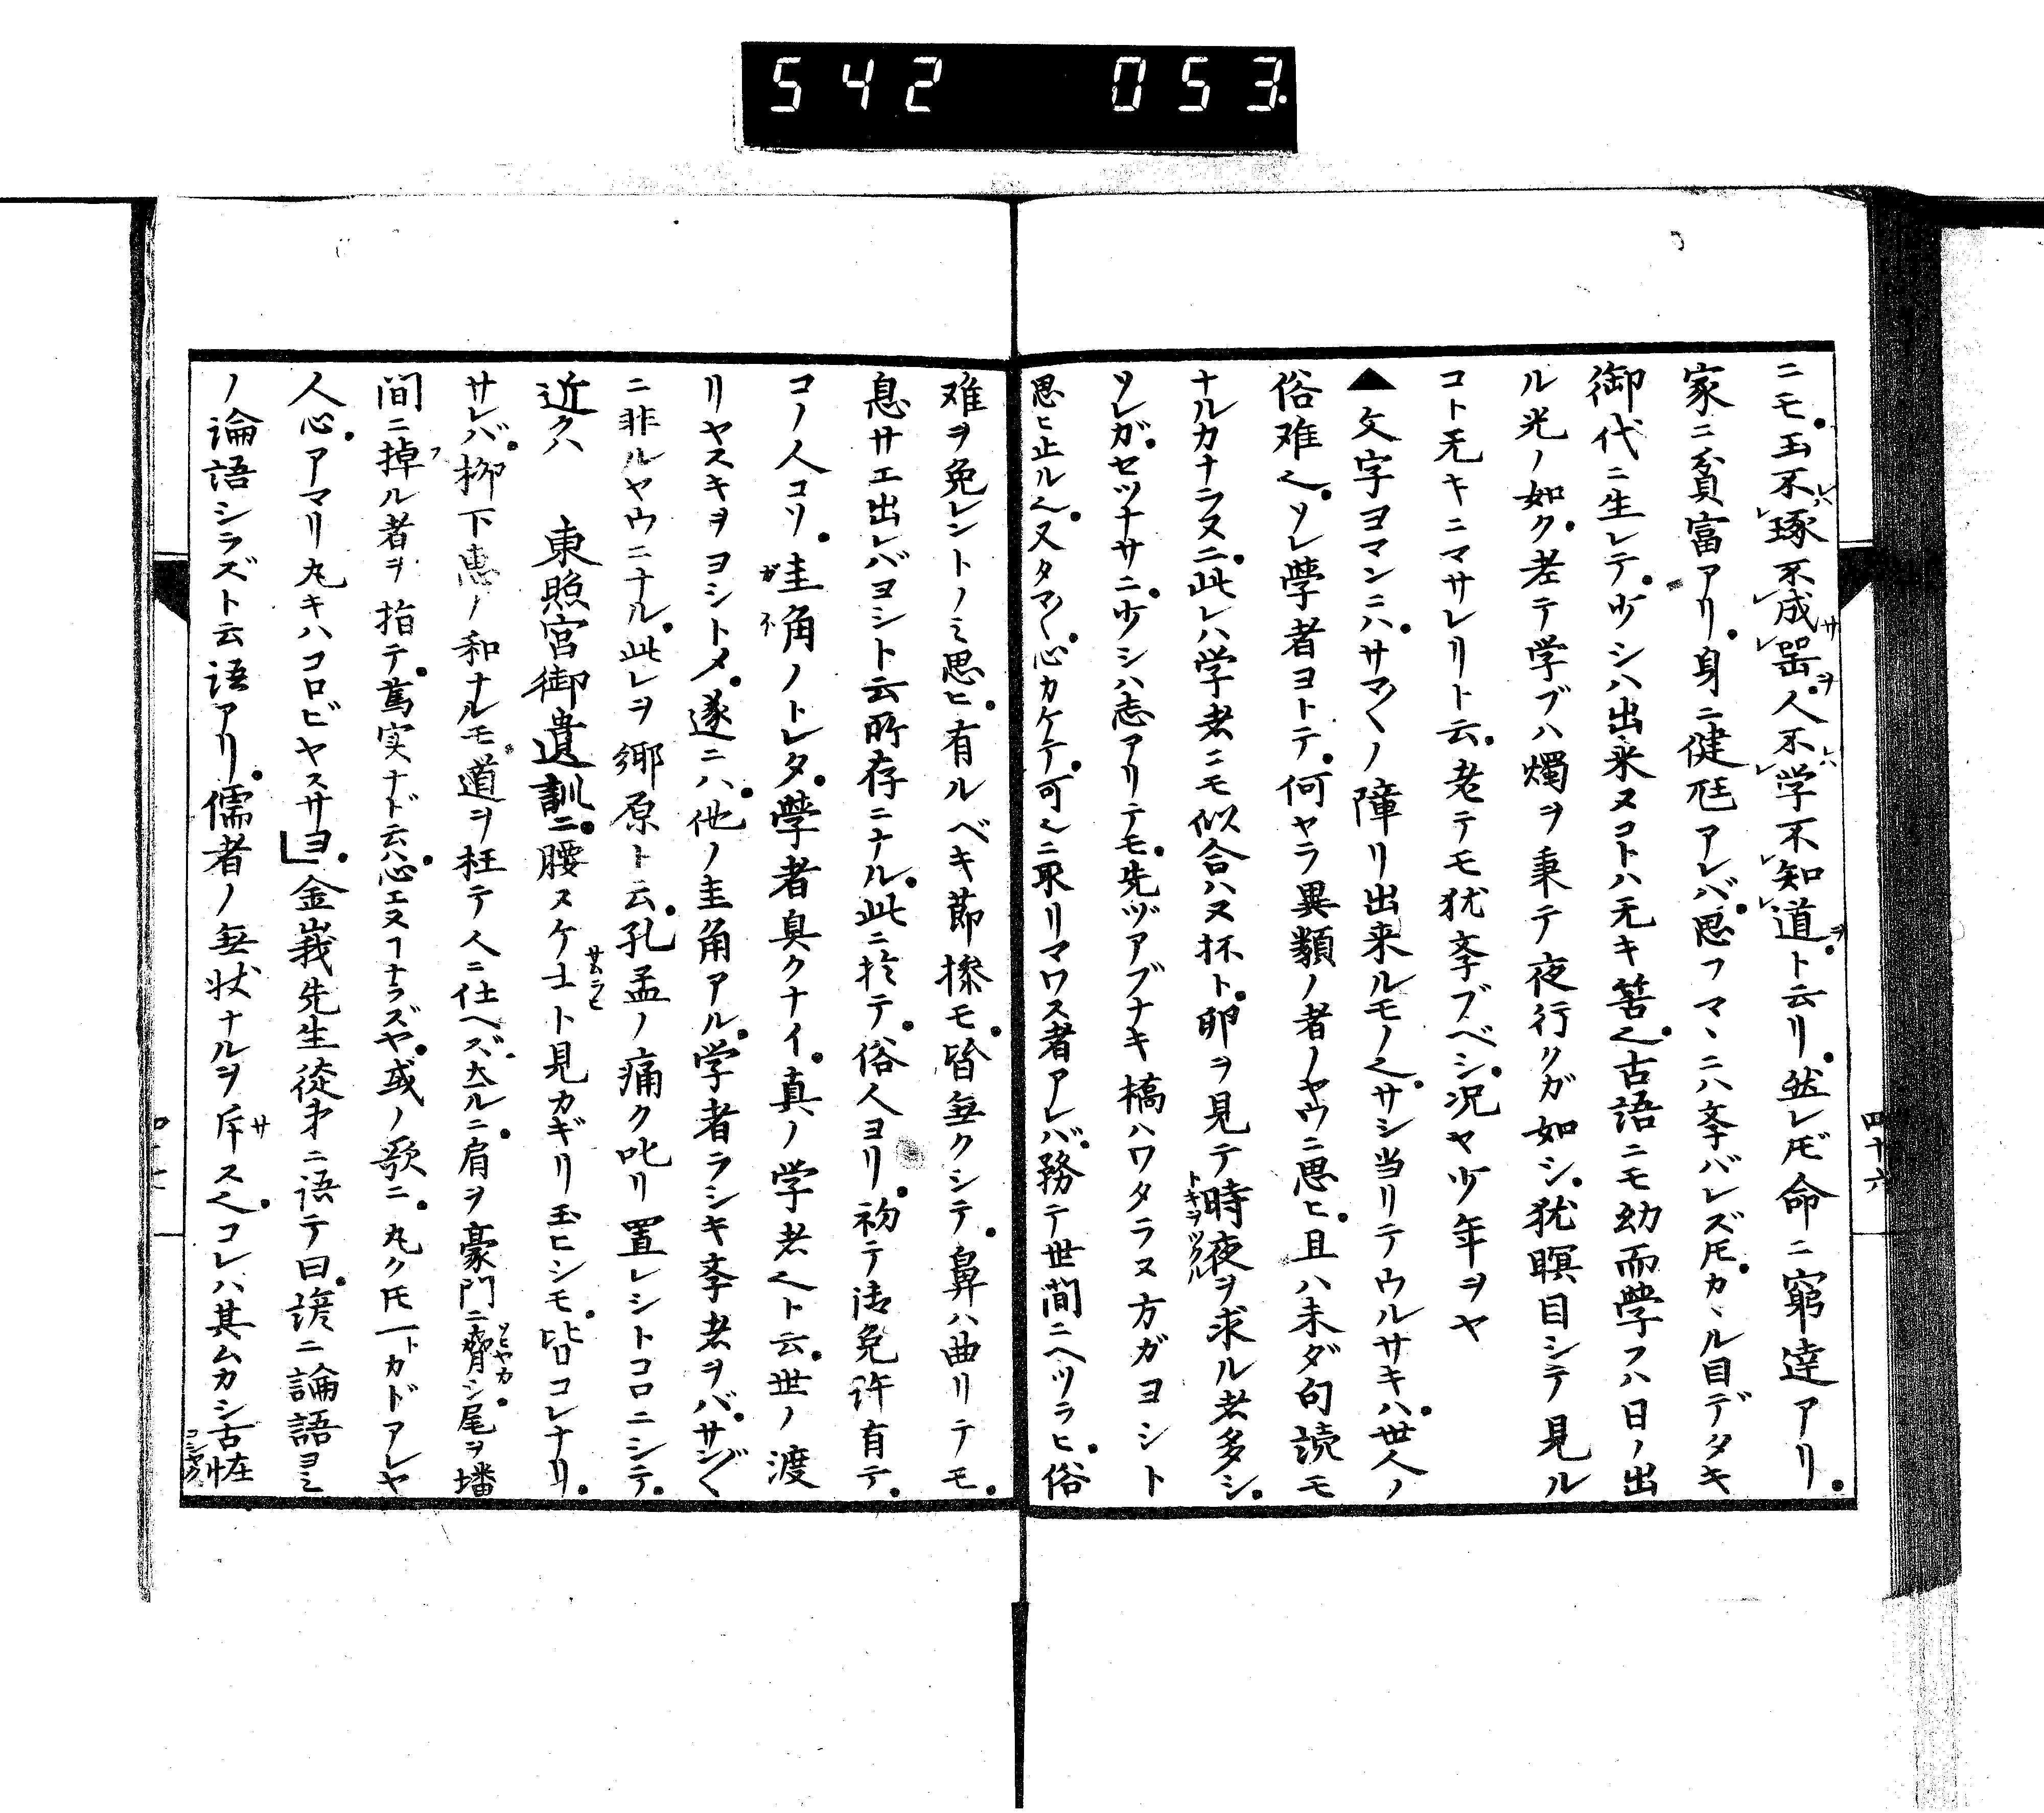 542 053
ニモ玉不琢不成器人不学不知道ト云リ然レ𪜈命ニ窮達アリ
家ニ貧富アリ身ニ健尫アレバ思フマヽニハ孝バレズ𪜈カヽル目デタキ
御代ニ生レテ少シハ出来ヌコトハ无キ筈也古語ニモ幼而學フハ日ノ出
ル光ノ如ク老テ学ブハ燭ヲ秉テ夜行クガ如シ犹瞑目シテ見ル
コト无キニマサレリト云老テモ犹斈ブベシ況ヤ少年ヲヤ
▲文字ヨマンニハサマ〱ノ障リ出来ルモノ也サシ当リテウルサキハ世人ノ
俗难也ソレ學者ヨトテ何ヤラ異類ノ者ノヤウニ思ヒ且ハ未ダ句読モ
ナルカナラヌニ此レハ学者ニモ似合ハヌ抔ト卵ヲ見テ時夜ヲ求ル者多シ
トキヲツクル
ソレガセツナサニ少シハ志アリテモ先ヅアブナキ橋ハワタラヌ方ガヨシト
思ヒ止ル也又タマ〱心カケテ可也ニ取リマワス者アレバ務テ世間ニヘツラヒ俗
难ヲ免レントノミ思ヒ有ルベキ節操モ皆無クシテ鼻ハ曲リテモ
息サエ出レバヨシト云所存ニナル此ニ於テ俗人ヨリ初テ御免許有テ
コノ人コソ圭角ノトレタ學者臭クナイ真ノ学者也ト云世ノ渡
リヤスキヲヨシトメ遂ニハ他ノ圭角アル学者ラシキ斈者ヲバサン〲
ニ非ルヤウニナル此レヲ郷原ト云孔孟ノ痛ク叱リ置レシトコロニシテ
近クハ 東照宮御遺訓ニ腰ヌケ士ト見カギリ玉ヒシモ皆コレナリ
サムラヒ
サレバ柳下惠ノ和ナルモ道ヲ枉テ人ニ仕ヘズ大ルニ肩ヲ豪門ニ脅シ尾ヲ墦
ソビヤカ
間ニ掉ル者ヲ指テ篤実ナドヽ云ハ心エヌヿナラズヤ或ノ歌ニ丸ク𪜈一カドアレヤ
人心アマリ丸キハコロビヤスサヨ」金峩先生従弟ニ語テ曰諺ニ論語ヨミ
ノ論語シラズト云語アリ儒者ノ無状ナルヲ斥ス也コレハ其ムカシ古在
四十六